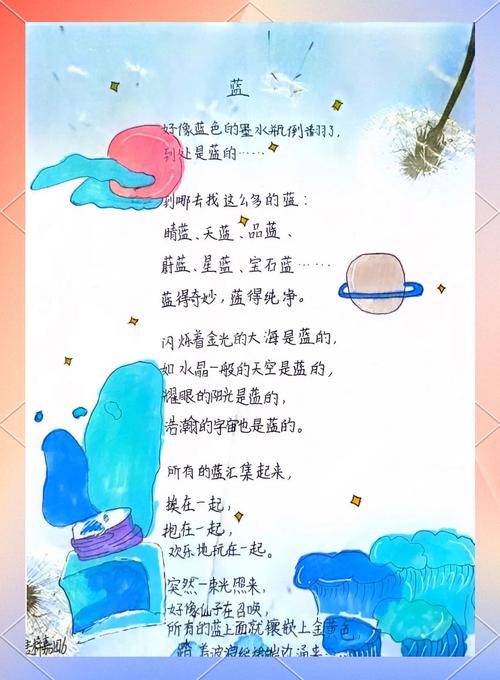 蓝
好像蓝色的墨水瓶倒翻了，
到处是蓝的……
到哪去找这么多的蓝：
晴蓝、天蓝、品蓝、
蔚蓝、星蓝、宝石蓝……
蓝得奇妙，蓝得纯净。
闪烁着金光的大海是蓝的，
如水晶一般的天空是蓝的，
耀眼的阳光是蓝的，
浩瀚的宇宙也是蓝的。
所有的蓝汇集起来，
挨在一起，
抱在一起，
欢乐地玩在一起。
突然一束光照来，
好像仙子在召唤，
所有的蓝上面就镶嵌上金黄色，
踏着波浪
边涌来